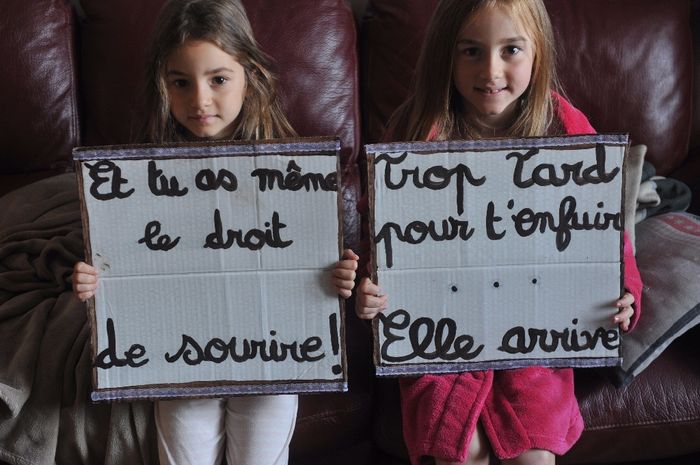 Et tu as même
le droit
de sourire!
Trop Tard
pour t'enfuir
...
Elle arrive